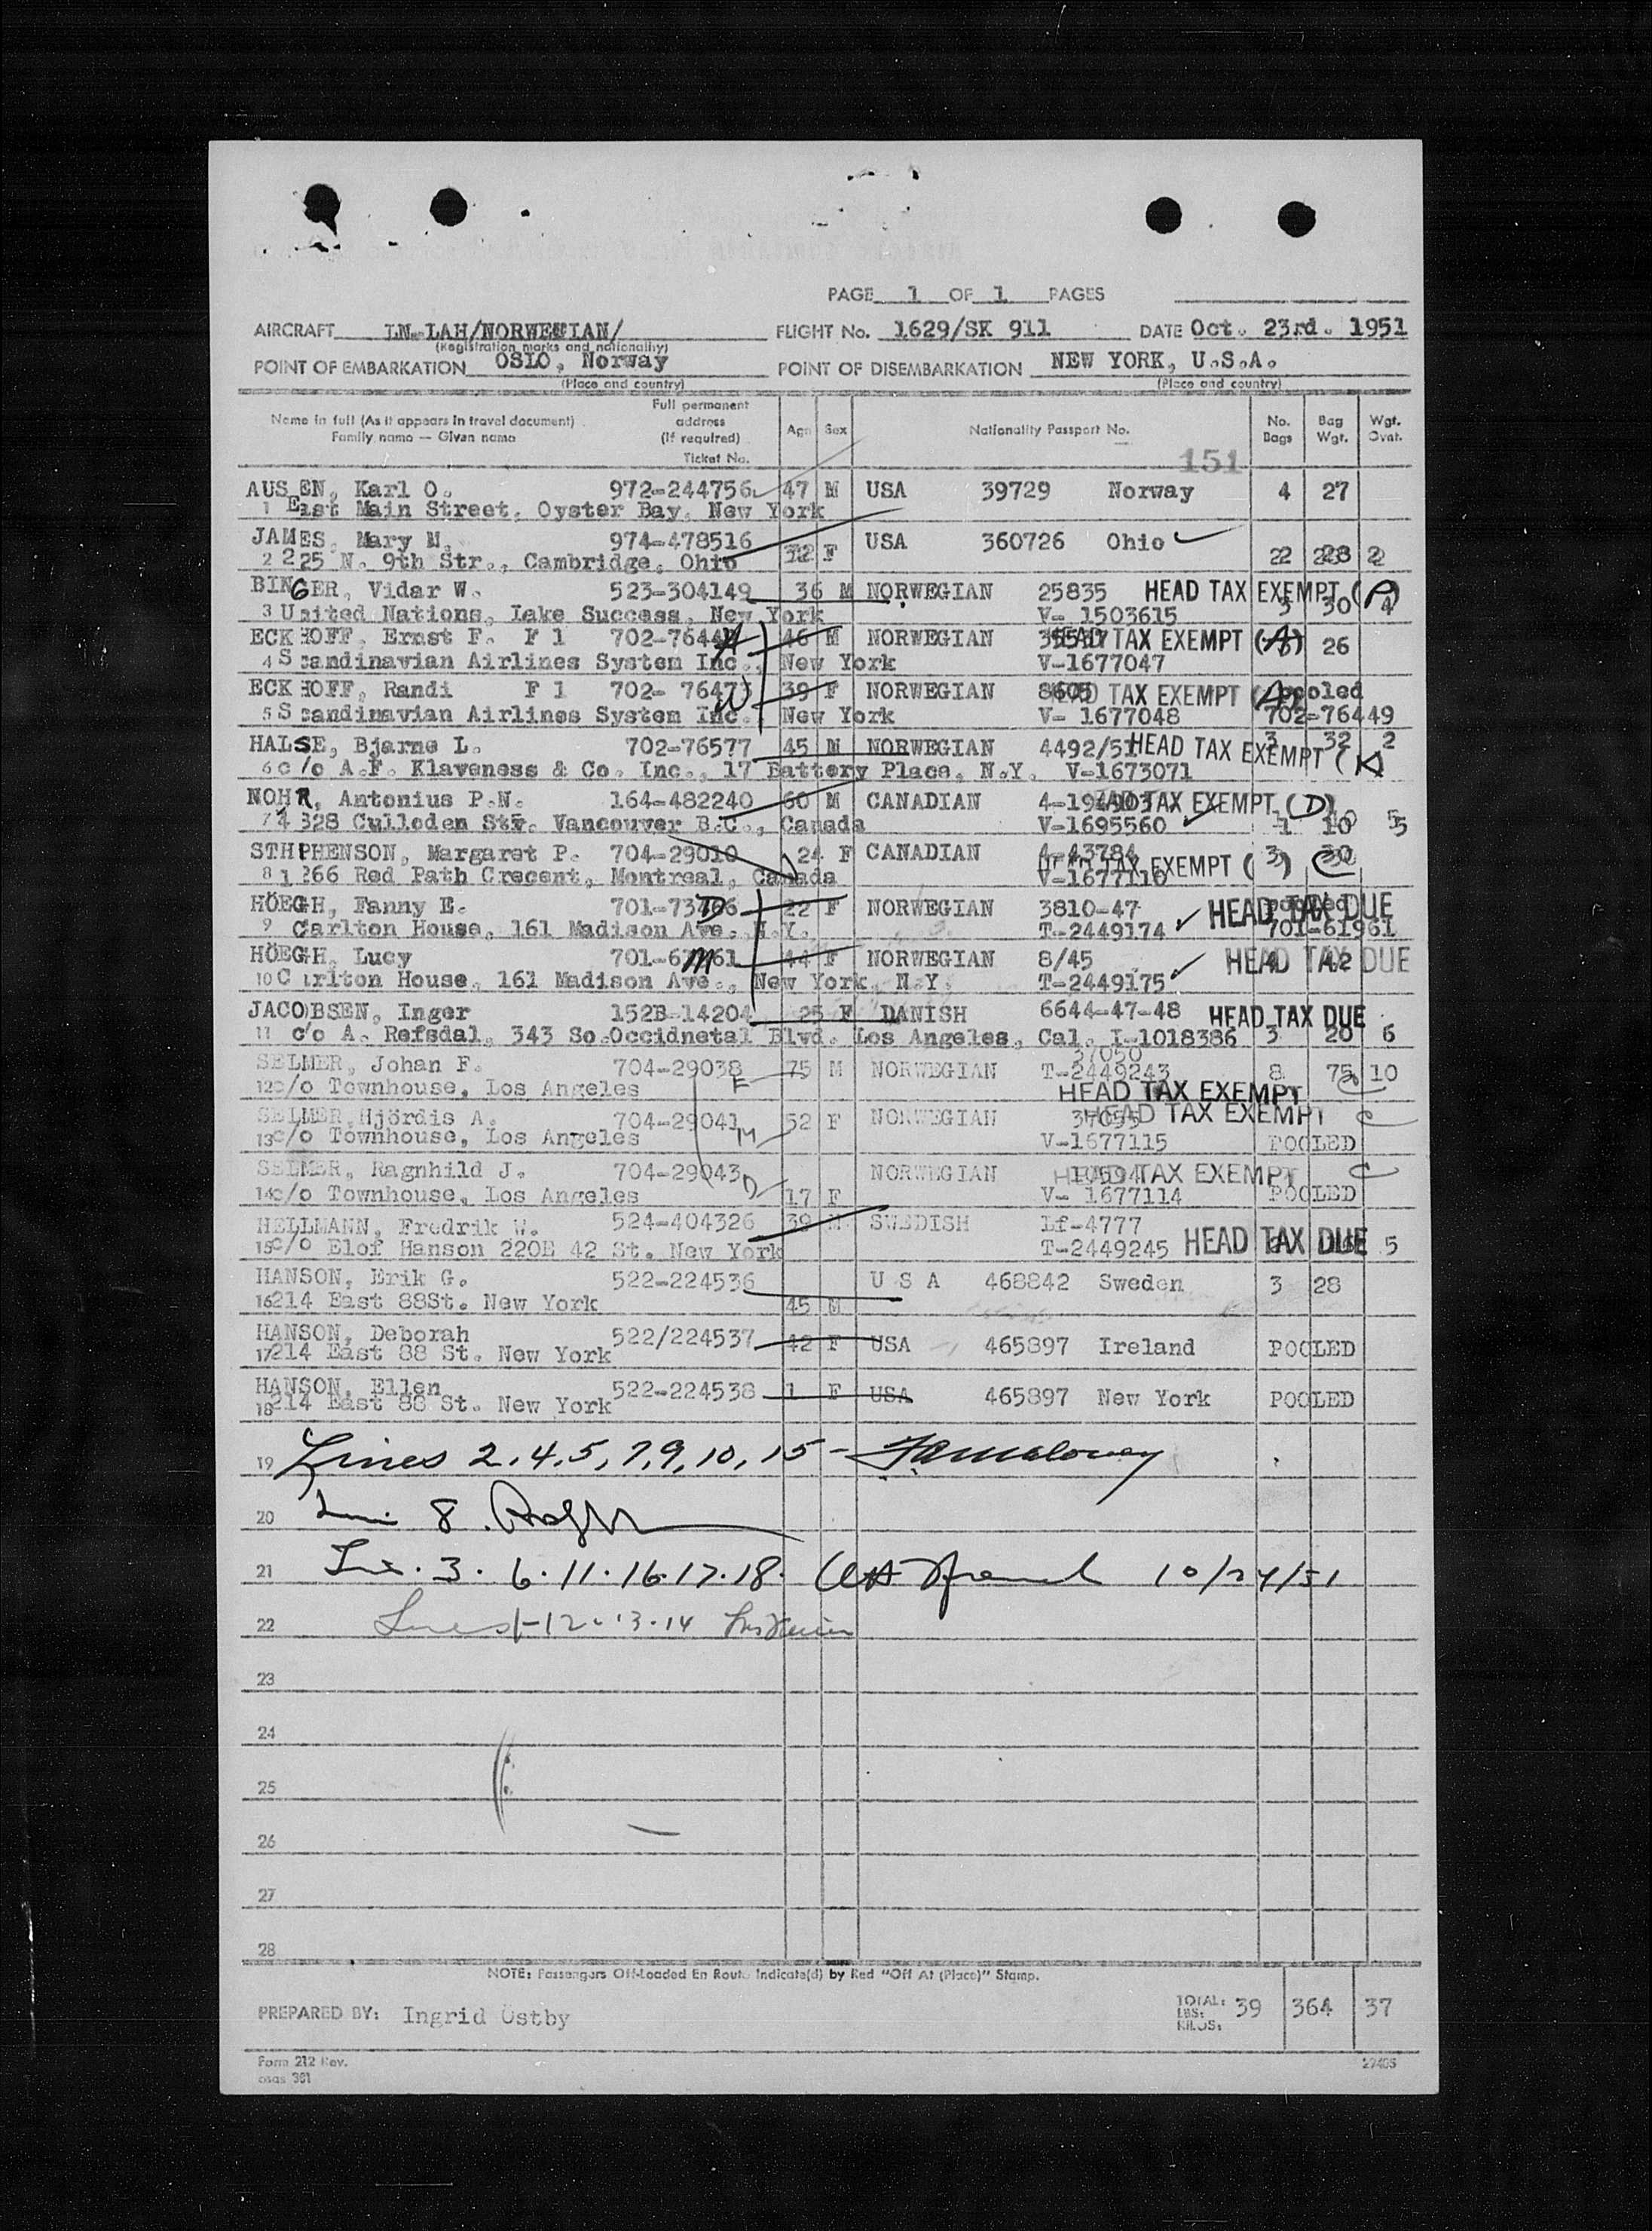 PAGE 1 OF 1 PAGES
AIRCRAFT LN-LAH/NORWEGIAN/ FLIGHT No. 1629/SK 911 DATE Oct. 23rd. 1951
(Registration marks and nationality)
POINT OF EMBARKATION OSLO, Norway POINT OF DISEMBARKATION NEW YORK, U.S.A.
(Place and country) (Place and country)
Name in full (As it appears in travel document) Family name — Given name Full permanent address (If required) Ticket No. Age Sex Nationality Passport No. No. Bags Bag Wgt. Wgt. Ovnt.
151
AUSEN, Karl O. 972-244756 47 M USA 39729 Norway 4 27
1 East Main Street, Oyster Bay, New York
JAMES, Mary M. 974-478516 32 F USA 360726 Ohio 2 28 2
2 225 N. 9th Str., Cambridge, Ohio
BINGER, Vidar W. 523-304149 36 M NORWEGIAN 25835 HEAD TAX EXEMPT (A) 3 30 4
3 United Nations, Lake Success, New York V- 1503615
ECKHOFF, Ernst F. F 1 702-7644 46 M NORWEGIAN HEAD TAX EXEMPT (A) 26
4 Scandinavian Airlines System Inc., New York V-1677047
ECKHOFF, Randi F 1 702- 76473 W 39 F NORWEGIAN 8605 HEAD TAX EXEMPT (A) pooled
5 Scandinavian Airlines System Inc. New York V- 1677048 702-76449
HALSE, Bjarne L. 702-76577 45 M NORWEGIAN 4492/51 HEAD TAX EXEMPT (A) 3 32 2
6 c/o A.F. Klaveness & Co. Inc., 17 Battery Place, N.Y. V-1673071
NOHR, Antonius P.N. 164-482240 60 M CANADIAN HEAD TAX EXEMPT (D)
7 4328 Culloden Str. Vancouver B.C., Canada V-1695560 1 10 5
STHPHENSON, Margaret P. 704-29010 24 F CANADIAN 4-43784 3 30
8 1266 Red Path Crecent, Montreal, Canada V-1677110 HEAD TAX EXEMPT ( ) C
HÖEGH, Fanny E. 701-73766 D 22 F NORWEGIAN 3810-47 HEAD TAX DUE pooled
9 Carlton House, 161 Madison Ave. N.Y. T-2449174 701-61961
HÖEGH, Lucy 701-61961 M 44 F NORWEGIAN 8/45 HEAD TAX DUE 4 42
10 Carlton House, 161 Madison Ave., New York, N.Y. T-2449175
JACOBSEN, Inger 152B-14204 25 F DANISH 6644-47-48 HEAD TAX DUE
11 c/o A. Refsdal, 343 So.Occidnetal Blvd. Los Angeles, Cal. I-1018386 3 20 6
SELMER, Johan F. 704-29038 F 75 M NORWEGIAN 37050 T-2449243 8 75 10
12 c/o Townhouse, Los Angeles HEAD TAX EXEMPT C
SELMER, Hjördis A. 704-29041 M 52 F NORWEGIAN HEAD TAX EXEMPT C
13 c/o Townhouse, Los Angeles V-1677115 POOLED
SELMER, Ragnhild J. 704-29043 NORWEGIAN HEAD TAX EXEMPT C
14 c/o Townhouse, Los Angeles D 17 F V- 1677114 POOLED
HELLMANN, Fredrik W. 524-404326 39 M SWEDISH Lf-4777
15 c/o Elof Hanson 220E 42 St. New York T-2449245 HEAD TAX DUE 5
HANSON, Erik G. 522-224536 U S A 468842 Sweden 3 28
16 214 East 88St. New York 45 M
HANSON, Deborah 522/224537 42 F USA 465897 Ireland POOLED
17 214 East 88 St. New York
HANSON, Ellen 522-224538 1 F USA 465897 New York POOLED
18 214 East 88 St. New York
19 Lines 2,4,5,7,9,10,15 -
20 8
21 3.6.11.16.17.18. 10/24/51
22 Lines 1-12-13-14
23
24
25
26
27
28
NOTE: Passengers Off-Loaded En Route Indicate(d) by Red "Off At (Place)" Stamp.
PREPARED BY: Ingrid Östby TOTAL: LBS: KILOS: 39 364 37
Form 212 Rev. 27405
osas 381